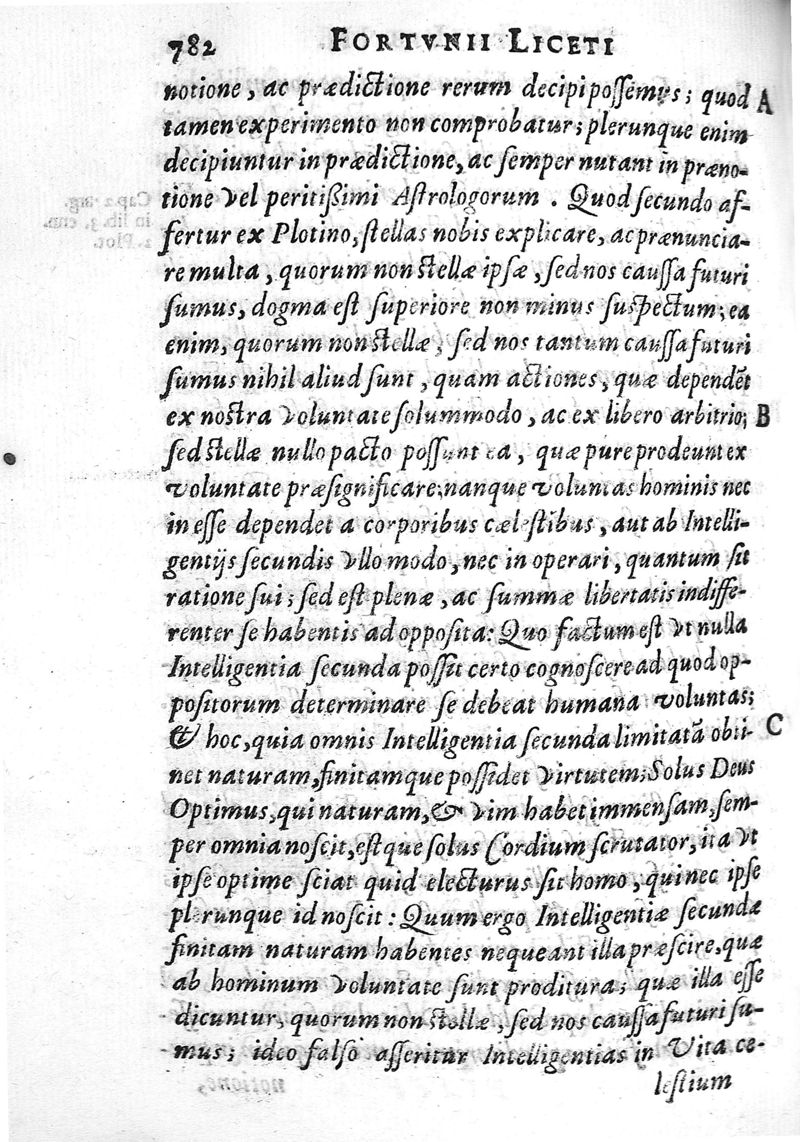 782 FORTVNII LICETI
notione, ac prædictione rerum decipi possemus; quod A
tamen experimento non comprobatur; plerunque enim
decipiuntur in prædictione, ac semper nutant in præno-
tione vel peritißimi Astrologorum. Quod secundo af-
fertur ex Plotino, stellas nobis explicare, ac prænuncia-
re multa, quorum non stellæ ipsæ, sed nos caussa futuri
sumus, dogma est superiore non minus suspectum; ea
enim, quorum non stellæ, sed nos tantum caussa futuri
sumus nihil aliud sunt, quam actiones, quæ dependẽt
ex nostra voluntate solummodo, ac ex libero arbitrio; B
sed stellæ nullo pacto possunt ea, quæ pure prodeunt ex
voluntate præsignificare; nanque voluntas hominis nec
in esse dependet a corporibus cælestibus, aut ab Intelli-
gentijs secundis vllo modo, nec in operari, quantum sit
ratione sui; sed est plenæ, ac summæ libertatis indiffe-
renter se habentis ad opposita: Quo factum est vt nulla
Intelligentia secunda possit certo cognoscere ad quod op-
positorum determinare se debeat humana voluntas;
& hoc, quia omnis Intelligentia secunda limitatã obti- C
net naturam, finitamque possidet virtutem; Solus Deus
Optimus, qui naturam, & vim habet immensam, sem-
per omnia noscit, estque solus Cordium scrutator, ita vt
ipse optime sciat quid electurus sit homo, qui nec ipse
plerunque id noscit: Quum ergo Intelligentiæ secundæ
finitam naturam habentes nequeant illa præscire, quæ
ab hominum voluntate sunt proditura; quæ illa esse
dicuntur, quorum non stellæ, sed nos caussa futuri su-
mus; ideo falso asseritur Intelligentias in Vita ce-
lestium